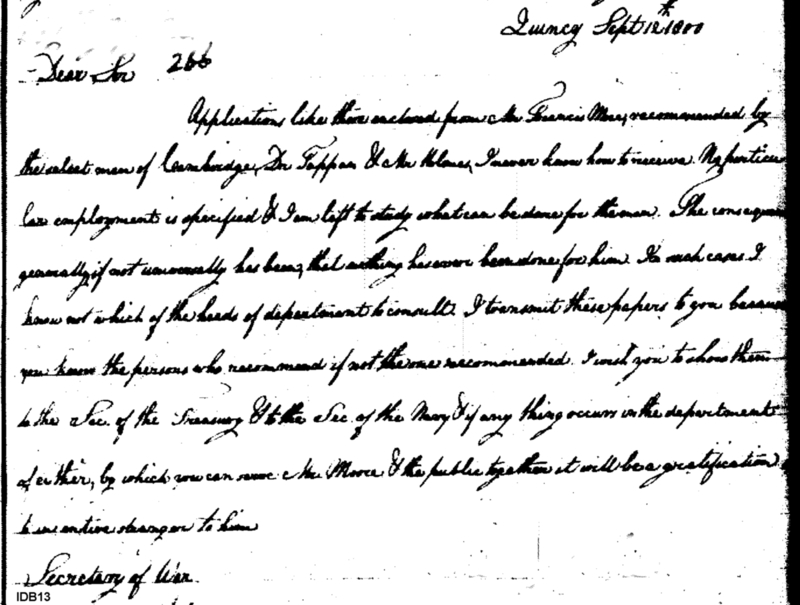 Quincy Sept 12th 1800
Dear Sir 266
Applications like this enclosed from Mr Francis Moore, recommended by
the select men of Cambridge, Dr Tappan & Mr Holmes, I never know how to receive. No particu
lar employment is specified & I am left to study what can be done for the man. The consequence
generally if not universally has been, that nothing has ever been done for him. In such cases I
know not which of the heads of department to consult. I transmit these papers to you because
you know the persons who recommend if not the one recommended. I wish you to show them
to the Sec. of the Treasury & to the Sec. of the Navy & if any thing occurs in the department
of either, by which you can serve Mr Moore & the public together it will be a gratification
to an entire stranger to him
Secretary of War.
IDB13